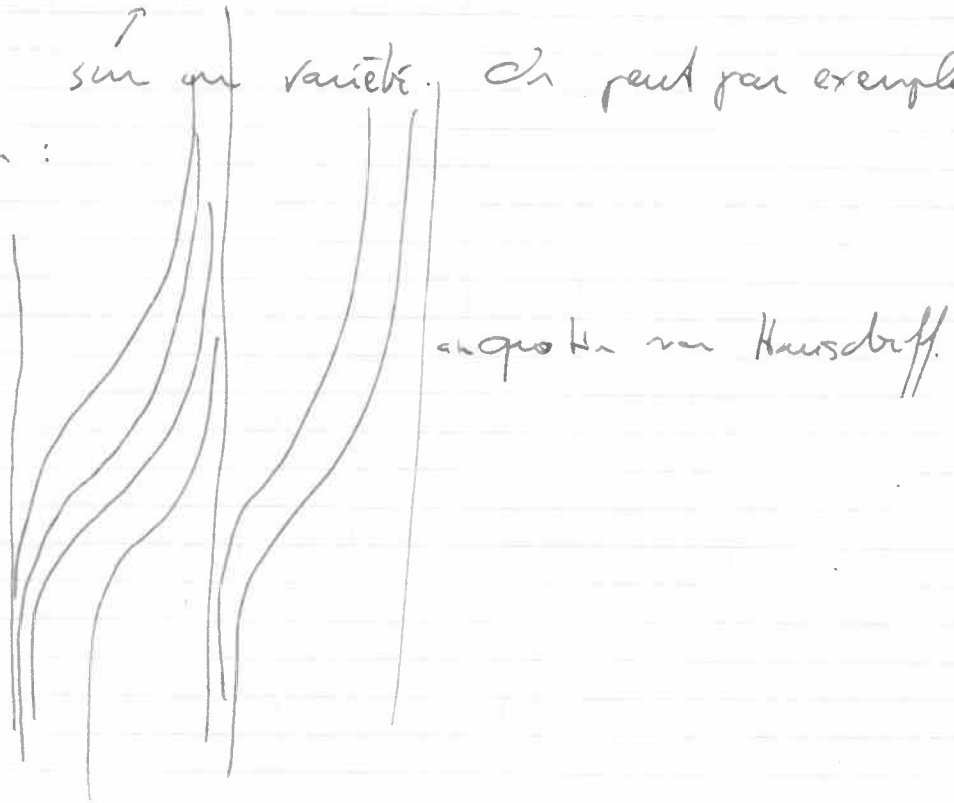 sur un variété. On peut par exemple
:
quotien non Hausdorff.